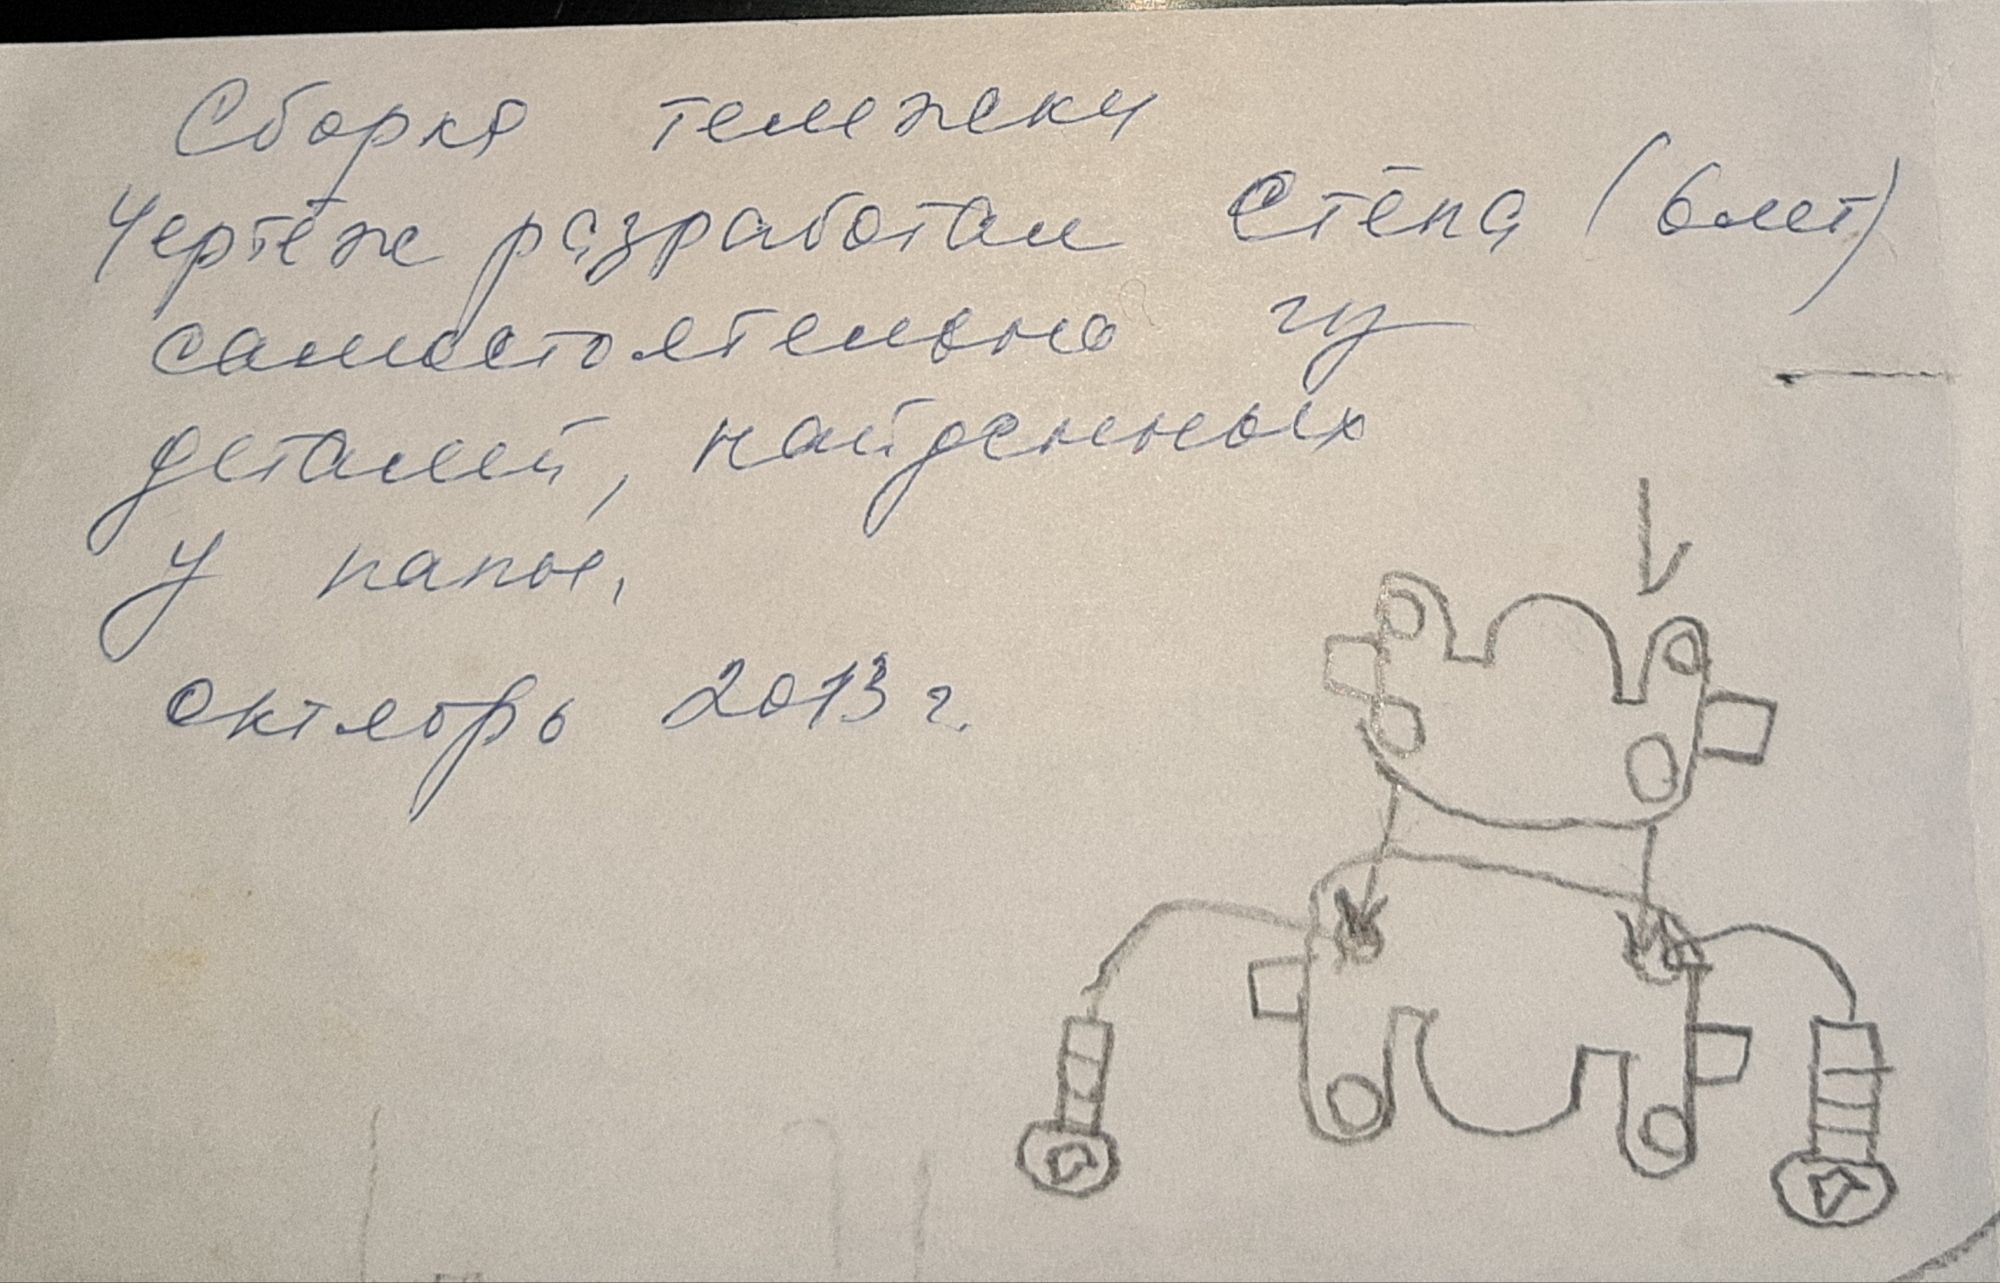 Сборка тележки
Чертёж разработал Стёпа (6 лет)
самостоятельно из
деталей, найденных
у папы.
октябрь 2013 г.